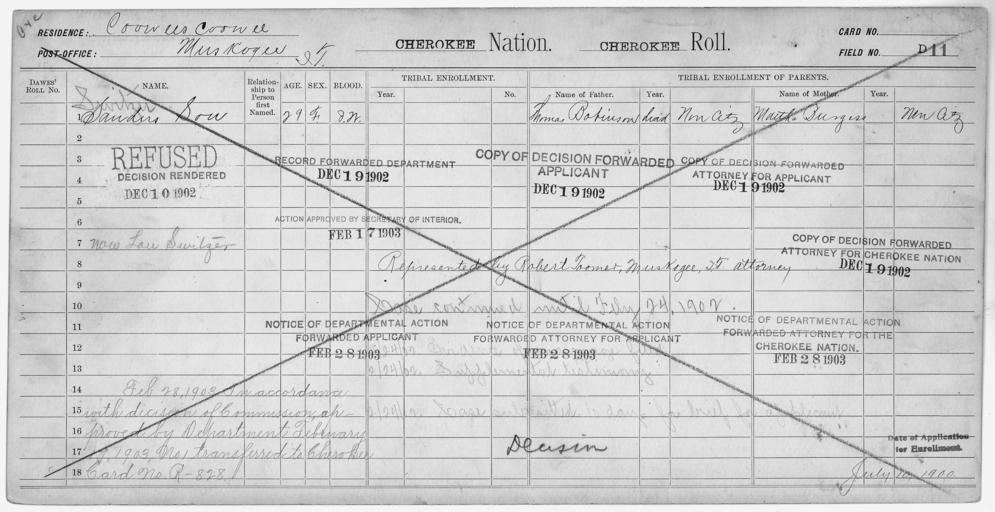 RESIDENCE: Coowees coowee
POST-OFFICE: Muskogee I.T.
CHEROKEE Nation. CHEROKEE Roll.
CARD NO.
FIELD NO. D11
DAWES' ROLL No.
NAME.
Relationship to Person first Named.
AGE. SEX. BLOOD.
TRIBAL ENROLLMENT.
Year. No.
TRIBAL ENROLLMENT OF PARENTS.
Name of Father. Year. Name of Mother. Year.
Switzer
1 Sanders Lou 29 F Thomas Robinson dead Non Citz Burgess Non Citz
2
3 REFUSED
DECISION RENDERED
DEC 10 1902
RECORD FORWARDED DEPARTMENT
DEC 19 1902
COPY OF DECISION FORWARDED
APPLICANT
DEC 19 1902
COPY OF DECISION FORWARDED
ATTORNEY FOR APPLICANT
DEC 19 1902
4
5
6 ACTION APPROVED BY SECRETARY OF INTERIOR.
FEB 17 1903
7 now Lou Switzer
COPY OF DECISION FORWARDED
ATTORNEY FOR CHEROKEE NATION
DEC 19 1902
8 Represented by Robert Toomer, Muskogee, I.T. attorney
9
10 Case continued until Feby 24, 1902.
11 NOTICE OF DEPARTMENTAL ACTION
FORWARDED APPLICANT
FEB 28 1903
NOTICE OF DEPARTMENTAL ACTION
FORWARDED ATTORNEY FOR APPLICANT
FEB 28 1903
NOTICE OF DEPARTMENTAL ACTION
FORWARDED ATTORNEY FOR THE
CHEROKEE NATION.
FEB 28 1903
12
13 2/24/02 Supplemental testimony
14 Feb 28, 1903 In accordance
15 with decision of Commission, ap-
2/24/02 Case submitted
16 proved by Department February
17 1903 No 1 transferred to Cherokee
Decision
18 Card No R-828.
Date of Application for Enrollment.
July 10, 1900